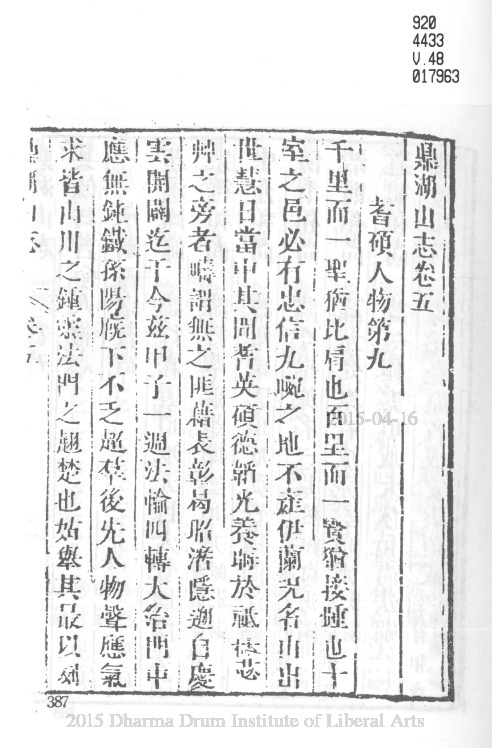 920
4433
V.48
017963
鼎湖山志卷五
耆碩人物第九
千里而一聖猶比肩也百里而一賢猶接踵也十
室之邑必有忠信九畹之地不產伊蘭況名山出
世慧日當中其間耆英碩德韜光養晦於祇林忍
艸之旁者疇謂無之匪藉表彰曷昭潛隱邇自慶
雲開闢迄于今茲甲子一週法輪四轉大冶門中
應無鈍鐵孫陽廄下不乏超群後先人物聲應氣
求皆山川之鍾靈法門之翹楚也姑舉其最以列
鼎湖山志 卷五
2015-04-16
387
2015 Dharma Drum Institute of Liberal Arts